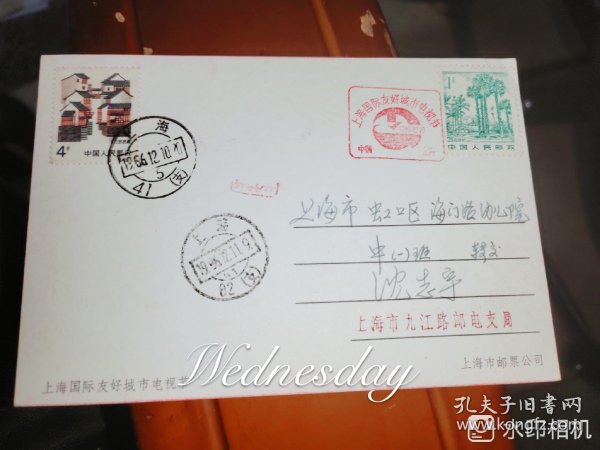 4分
中国人民邮政
上海
1986.12.10.
5
41(支)
上海国际友好城市电视节
中国
上海
1分
中国人民邮政
上海市虹口区海门路幼儿院
上海
中(一)班 转交
沈志平
82(支)
上海市九江路邮电支局
上海市邮票公司
Wednesday
上海国际友好城市电视节
孔夫子旧书网
www.kongfz.com
水印相机